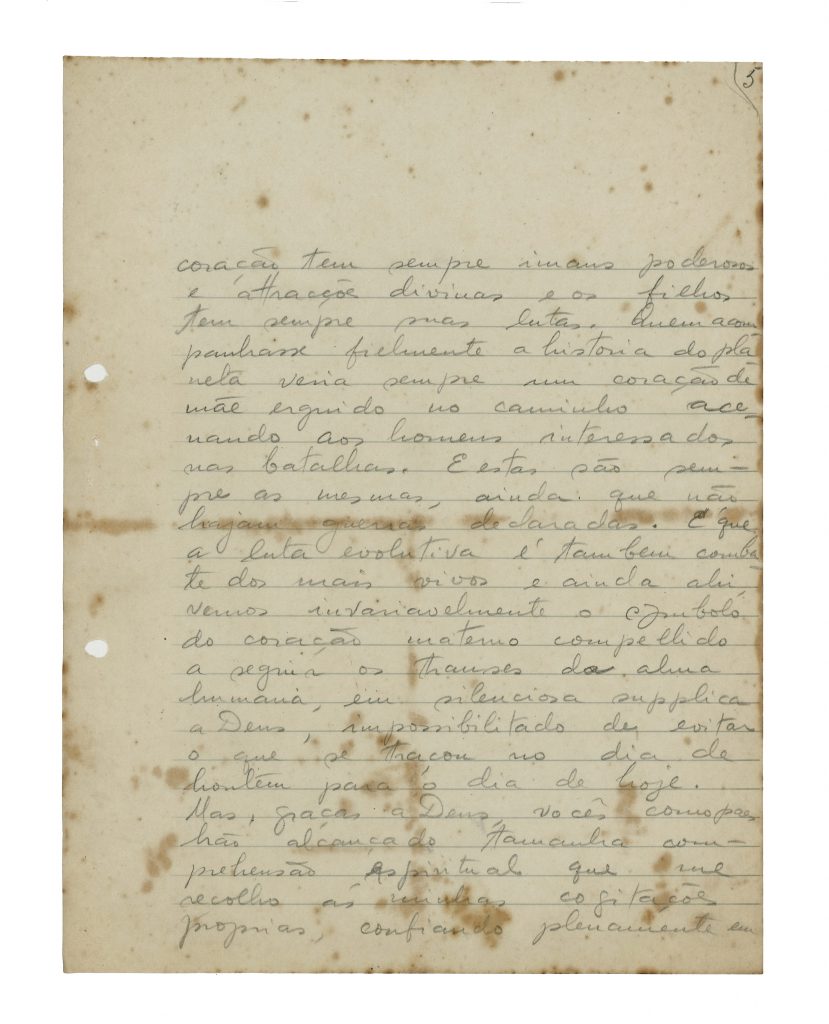 5
coração tem sempre imans poderosos
e attracções divinas e os filhos
tem sempre suas lutas. Quem acom
panhasse fielmente a historia do pla
neta veria sempre um coração de
mãe erguido no caminho ace-
nando aos homens interessados
nas batalhas. E estas são sem-
pre as mesmas, ainda que não
hajam guerras declaradas. E' que
a luta evolutiva é tambem comba
te dos mais vivos e ainda ahi
vemos invariavelmente o symbolo
do coração materno compellido
a seguir os transes da alma
humana, em silenciosa supplica
a Deus, impossibilitado de evitar
o que se traçou no dia de
hontem para o dia de hoje.
Mas, graças a Deus, vocês como paes
hão alcançado tamanha com-
prehensão espiritual que me
recolho ás minhas cogitações
proprias, confiando plenamente em